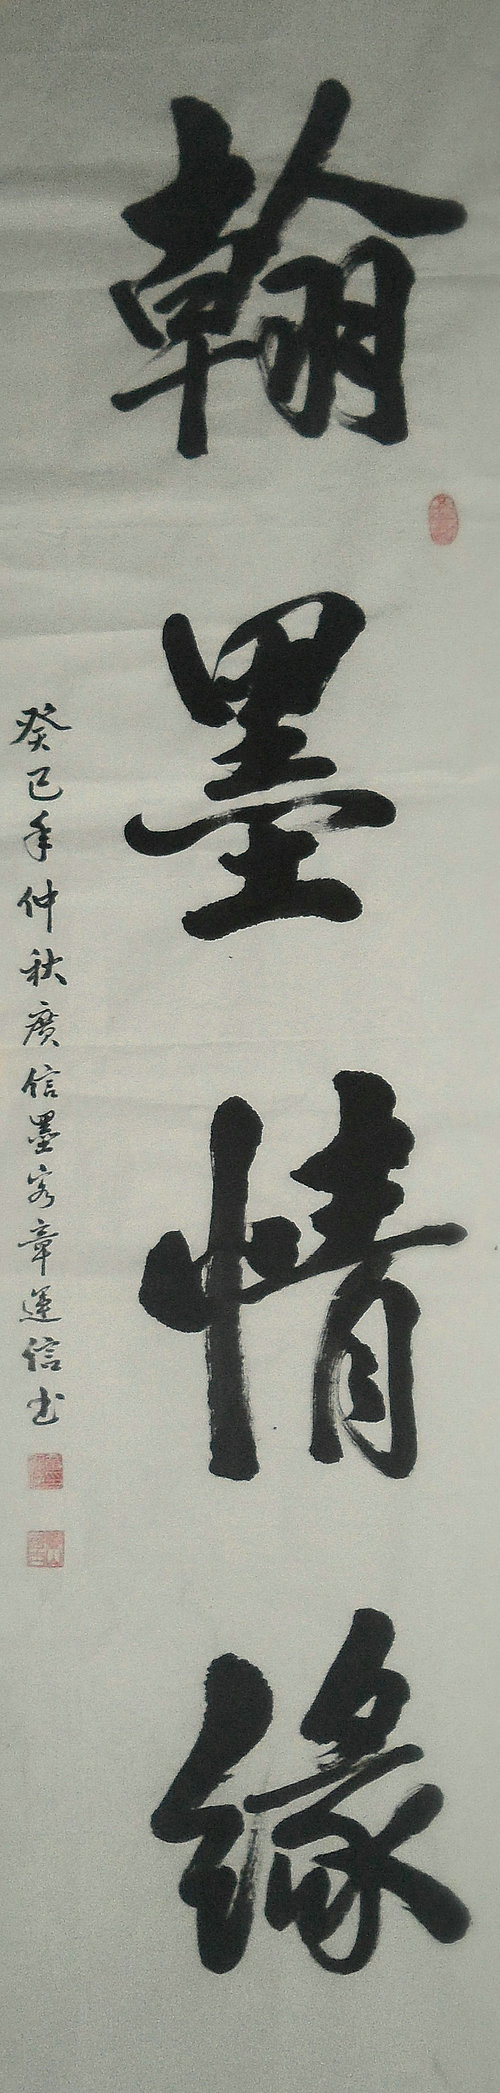 翰墨情緣
癸巳年仲秋廣信墨客章運信书